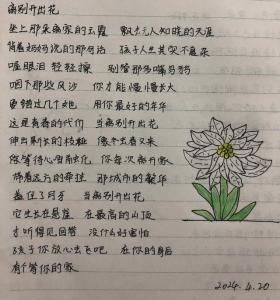 离别开出花
坐上那朵离家的云霞 飘去无人知晓的天涯
背着妈妈说的那句话 孩子人生其实不复杂
喔眼泪轻轻擦 别管那多嘴乌鸦
咽下那些风沙 你才能慢慢长大
曾错过几个她 用你最好的年华
这是青春的代价 当离别开出花
伸出新长的枝桠 像冬去春又来
等待心雪融化 你每次离开家
带着远方的牵挂 那城市的繁华
盖住了月牙 当离别开出花
它生长在悬崖 在最高的山顶
才听得见回答 没什么好害怕
孩子你放心去飞吧 在你的身后
有个等你的家
2024.4.20